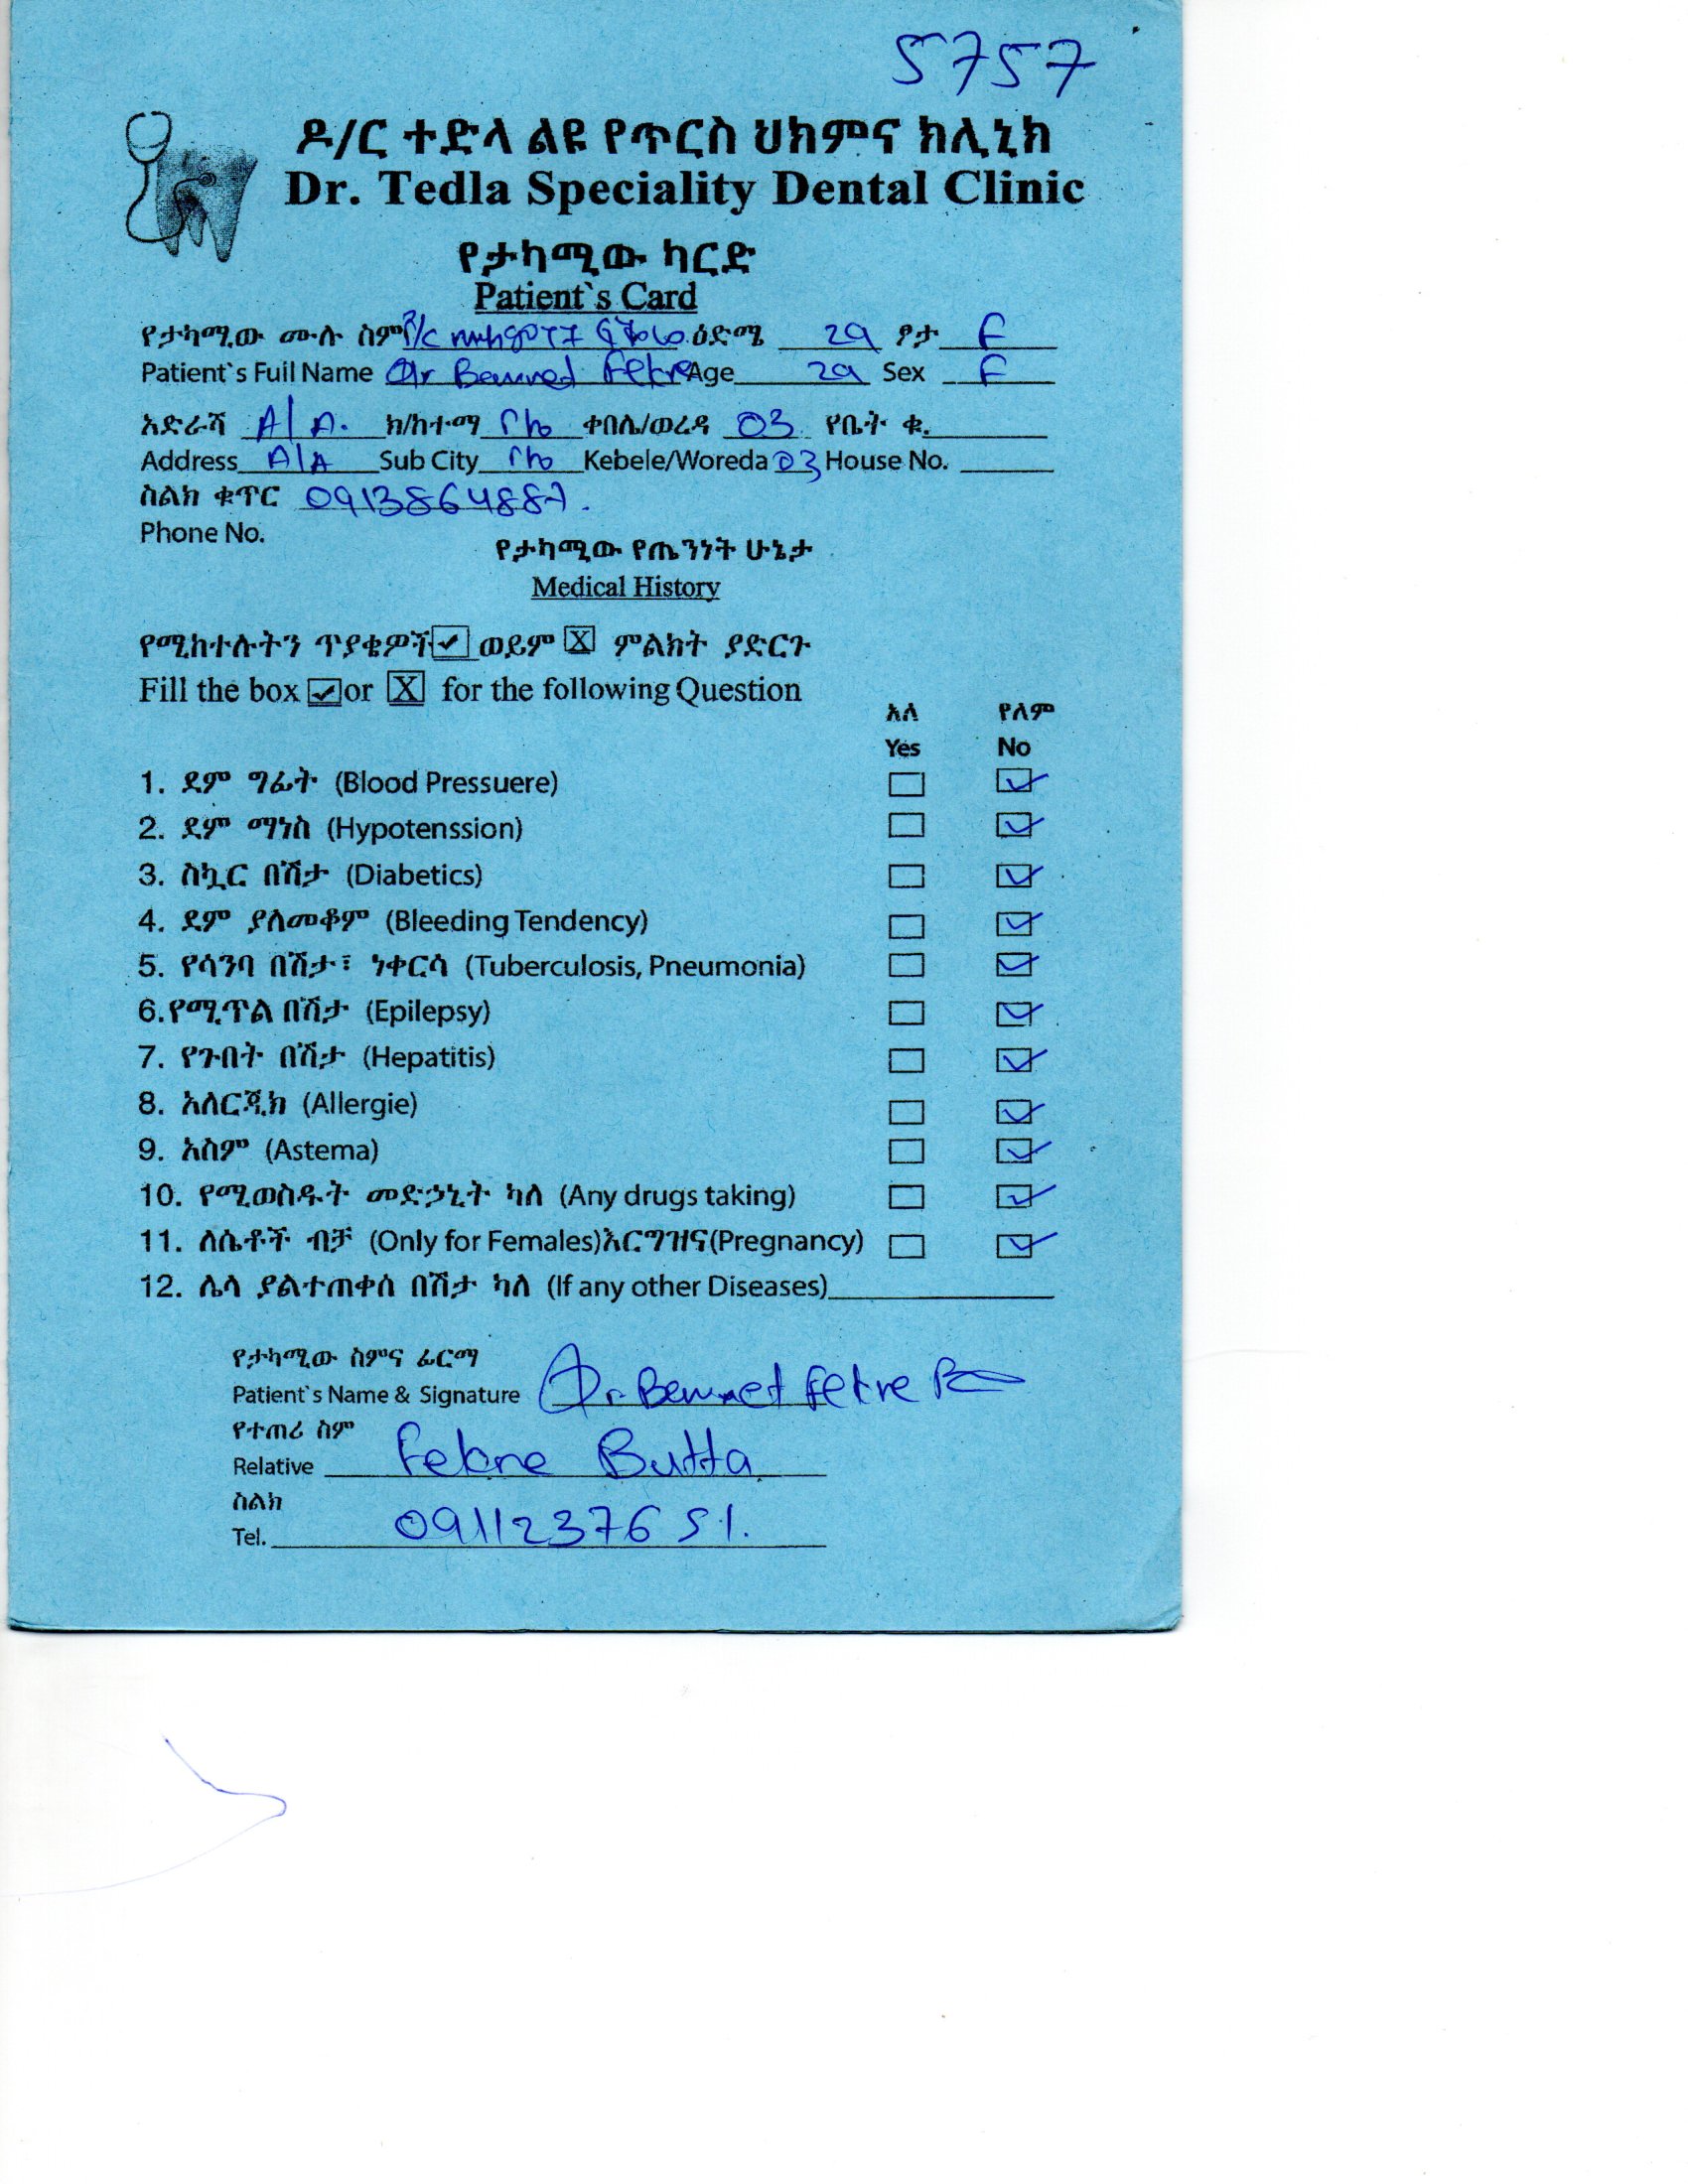 5757
ዶ/ር ተድላ ልዩ የጥርስ ህክምና ክሊኒክ
Dr. Tedla Speciality Dental Clinic
የታካሚው ካርድ
Patient`s Card
የታካሚው ሙሉ ስም ዕድሜ 29 ፆታ F
Patient`s Fuil Name Dr Fekre Age 29 Sex F
አድራሻ A/A. ክ/ከተማ ቀበሌ/ወረዳ 03 የቤት ቁ.
Address A/A Sub City Kebele/Woreda 03 House No.
ስልክ ቁጥር 0913864887.
Phone No.
የታካሚው የጤንነት ሁኔታ
Medical History
የሚከተሉትን ጥያቄዎች ✓ ወይም X ምልክት ያድርጉ
Fill the box ✓ or X for the following Question
አለ የለም
Yes No
1. ደም ግፊት (Blood Pressuere) ✓
2. ደም ማነስ (Hypotenssion) ✓
3. ስኳር በሽታ (Diabetics) ✓
4. ደም ያለመቆም (Bleeding Tendency) ✓
5. የሳንባ በሽታ፣ ነቀርሳ (Tuberculosis, Pneumonia) ✓
6. የሚጥል በሽታ (Epilepsy) ✓
7. የጉበት በሽታ (Hepatitis) ✓
8. አለርጂክ (Allergie) ✓
9. አስም (Astema) ✓
10. የሚወስዱት መድኃኒት ካለ (Any drugs taking) ✓
11. ለሴቶች ብቻ (Only for Females)እርግዝና(Pregnancy) ✓
12. ሌላ ያልተጠቀሰ በሽታ ካለ (If any other Diseases)
የታካሚው ስምና ፊርማ
Patient`s Name & Signature Dr Fekre
የተጠሪ ስም
Relative Butta
ስልክ
Tel. 0911237651.